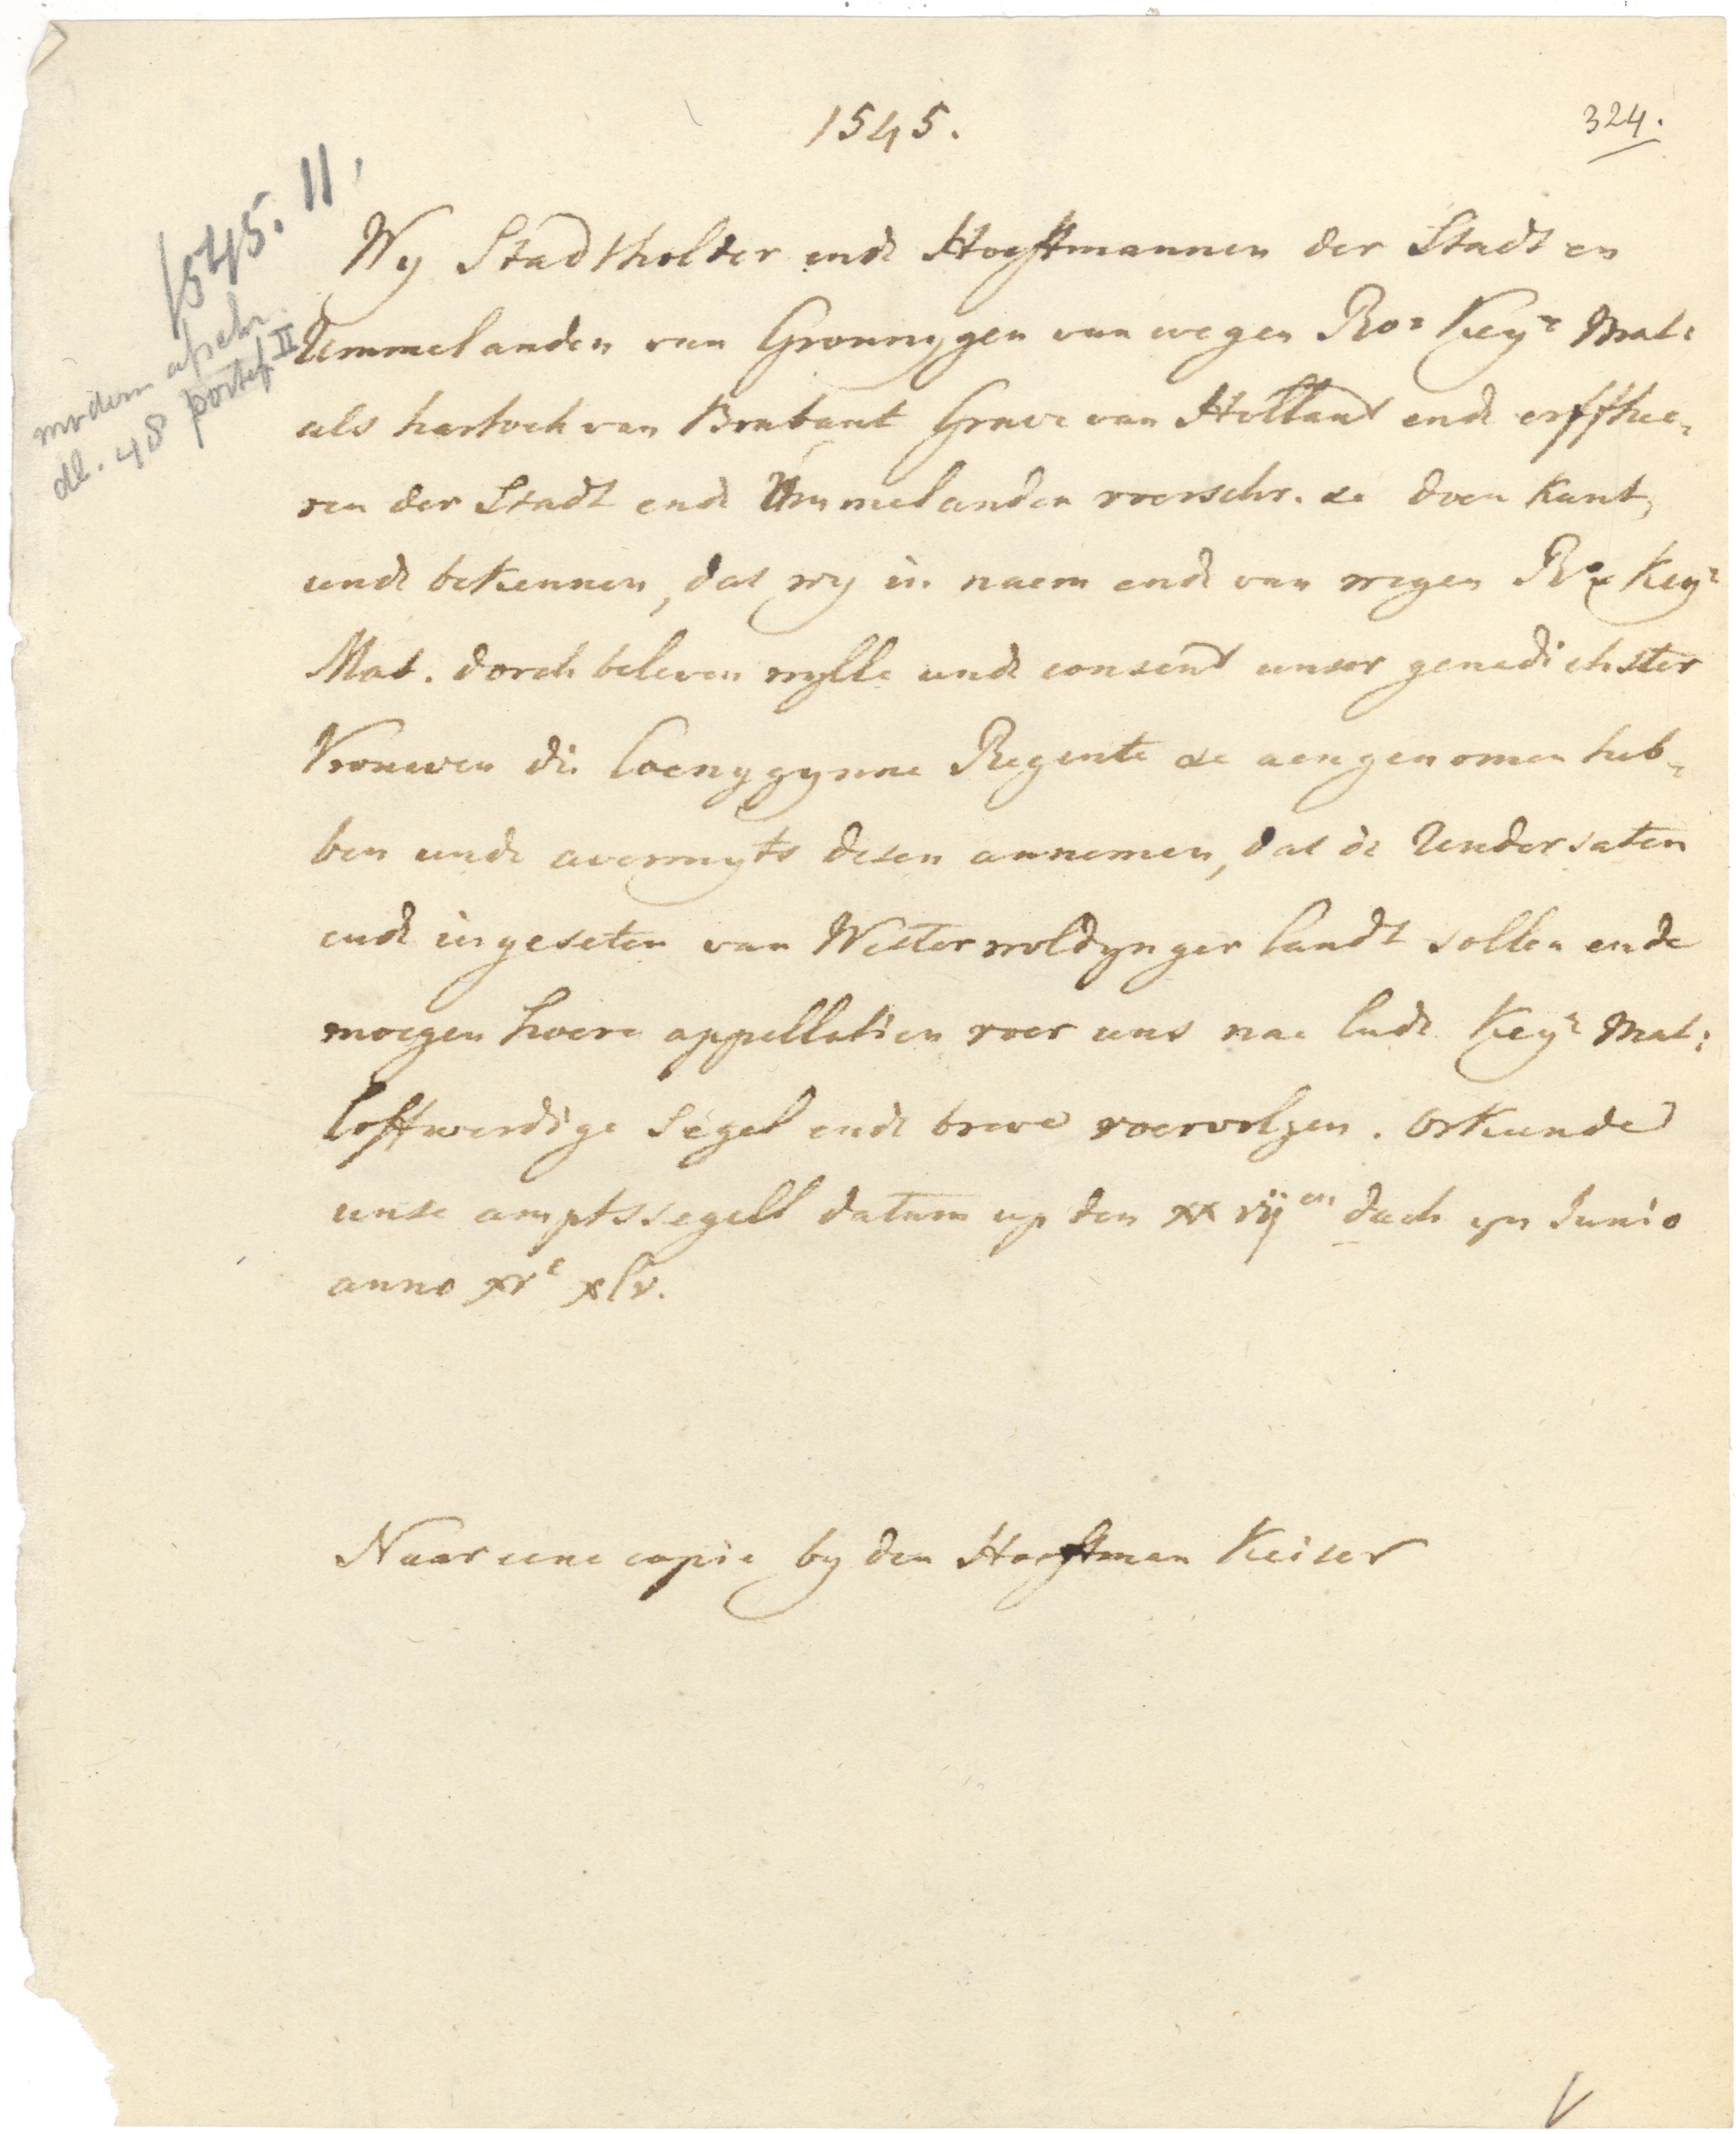 1545.
324.
1545. 11.
modern afschr.
dl. 48 portef II
Wy Stadtholder ende Hoeftmannen der Stadt en
Ummelanden van Gronnygen van wegen Ro: Key: Mat:
als hartoch van Brabant Grave van Hollant ende erffhee-
ren der Stadt ende Ummelanden voerschr. &c doen kant,
unde bekennen, dat wy in naem ende van wegen Ro: Key:
Mat. dorch beleven wylle unde consent unser genedichster
Vrouwen die Coenygynne Regente &c aengenomen heb-
ben unde avermyts desen annemen, dat de Undersaten
ende ingeseten van Westerwoldynger landt sollen ende
moegen hoere appellatien voer uns nae lude Key: Mat:
loffwerdige segel ende breve voervolgen. Orkunde
unse amptssegell datum up den xxvijen dach yn Junio
anno xvc xlv.
Naar eene copie by den Hoeftman Keiser